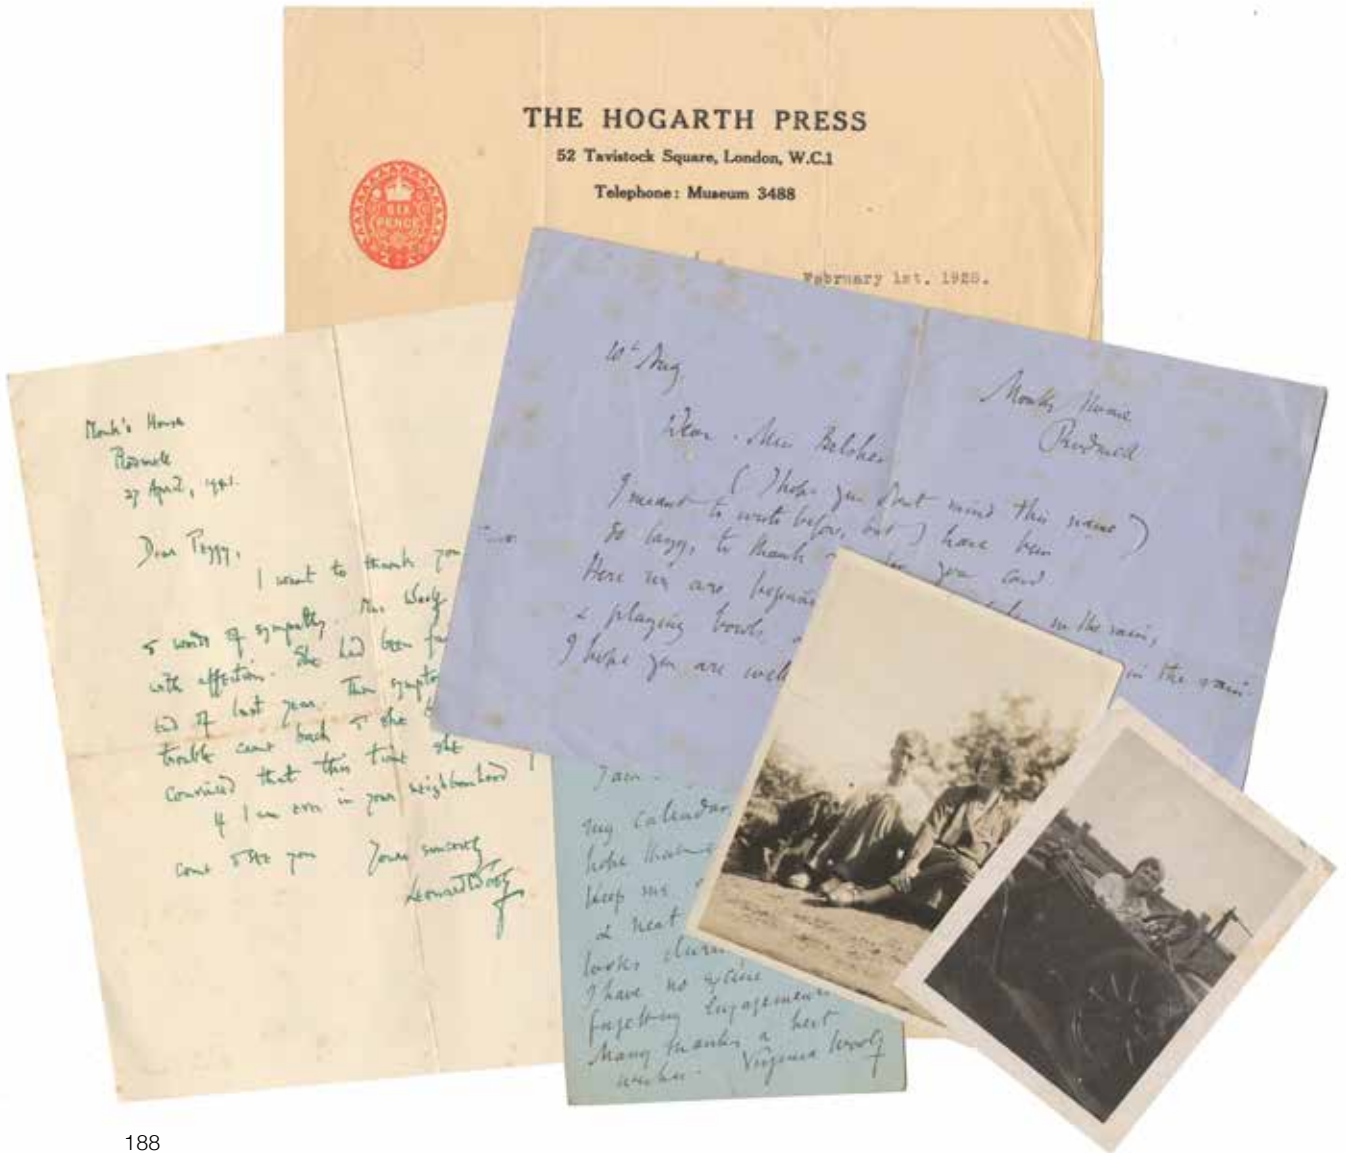 THE HOGARTH PRESS
52 Tavistock Square, London, W.C.1
Telephone: Museum 3488
SIX
PENCE
February 1st. 1928.
Monk's House
Rodmell
27 April, 1941.
Dear Peggy,
I want to thank you
& words of sympathy. Mrs Woolf
with affection. She had been
end of last year. Then
trouble came back & she
convinced that this time she
If I am ever in your neighbourhood I
come & see you
Yours sincerely
Leonard Woolf
10th Aug
Monks House
Rodmell
Dear Miss Belsher
(I hope you dont mind this name)
I meant to write before, but I have been
so lazy, to thank you card
Here we are
in the rain,
& playing bowls
in the rain.
I hope you are well
my calendar,
hope
keep me
& neat
looks
I have no
forgetting engagements
Many thanks & best
wishes. Virginia Woolf
188